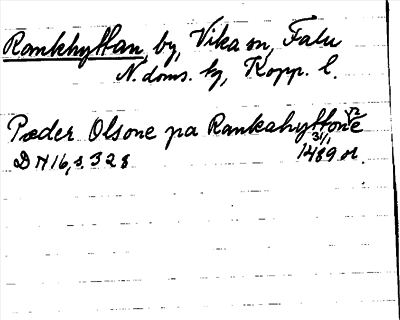 Rankhyttan, by, Vika sn, Falu
N. doms. hg, Kopp. l.
Pæder Olsone pa Rankahyttone
DN 16, s. 328 31/1 1489 or.